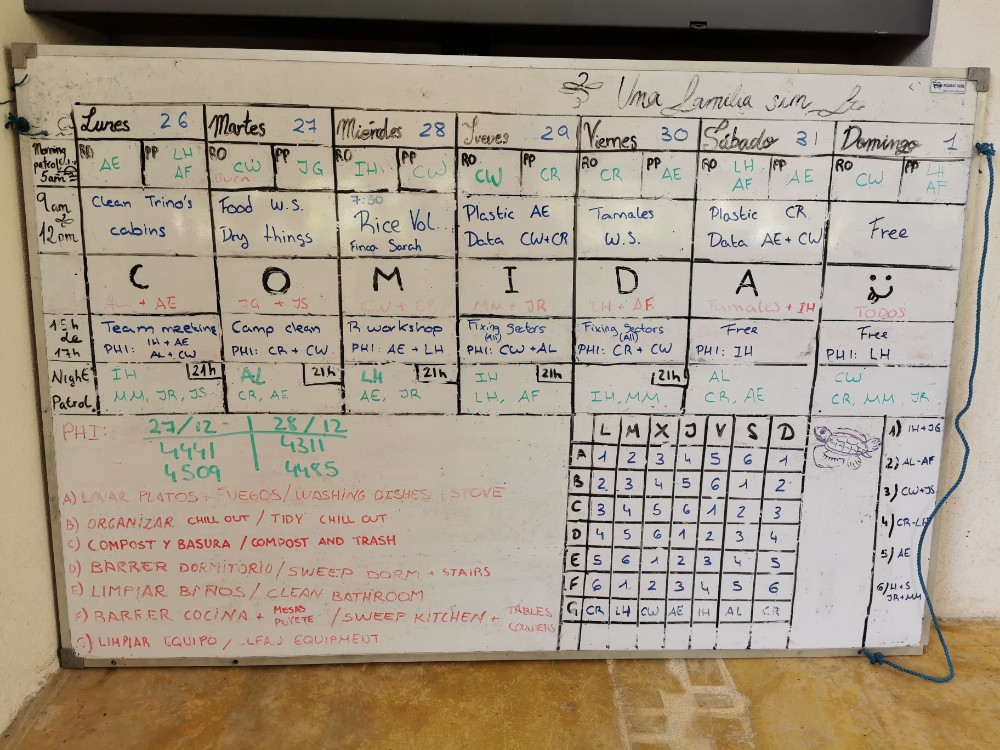 Uma Familia sem
Lunes 26 Martes 27 Miércoles 28 Jueves 29 Viernes 30 Sábado 31 Domingo 1
Morning patrol 5am RO AE PP LH AF RO CW Burn PP JG RO IH PP CW RO CW PP CR RO CR PP AE RO LH AF PP AE RO CW PP LH AF
9am 12pm
Clean Trino's cabins
Food W.S.
Dry things
7:30
Rice Vol..
Finca Sarah
Plastic AE
Data CW+CR
Tamales
W.S.
Plastic CR
Data AE + CW
Free
C O M I D A
AL + AE JG + JS CW + CR MM + JR LH + AF Tamales + IH TODOS
15h de 17h
Team meeking
IH + AE
AL + CW
Camp clean
PHI: CR + CW
R workshop
PHI: AE + LH
Fixing Sectors
(All)
PHI: CW + AL
Fixing Sectors
(All)
PHI: CR + CW
Free
PHI: IH
Free
PHI: LH
Night Patrol
IH 21h
MM, JR, JS
AL 21h
CR, AE
LH 21h
AE, JR
IH 21h
LH, AF
21h
IH, MM
AL
CR, AE
CW
CR, MM, JR
PHI: 27/12 28/12
4441 4311
4509 4485
A) LAVAR PLATOS + FUEGOS / WASHING DISHES + STOVE
B) ORGANIZAR CHILL OUT / TIDY CHILL OUT
C) COMPOST Y BASURA / COMPOST AND TRASH
D) BARRER DORMITORIO / SWEEP DORM + STAIRS
E) LIMPIAR BAÑOS / CLEAN BATHROOM
F) BARRER COCINA + MESAS / SWEEP KITCHEN + TABLES COUNTERS
G) LIMPIAR EQUIPO / CLEAN EQUIPMENT
L M X J V S D
A 1 2 3 4 5 6 1
B 2 3 4 5 6 1 2
C 3 4 5 6 1 2 3
D 4 5 6 1 2 3 4
E 5 6 1 2 3 4 5
F 6 1 2 3 4 5 6
G CR LH CW AE IH AL CR
1) IH+JG
2) AL-AF
3) CW+JS
4) CR-LH
5) AE
JR+MM